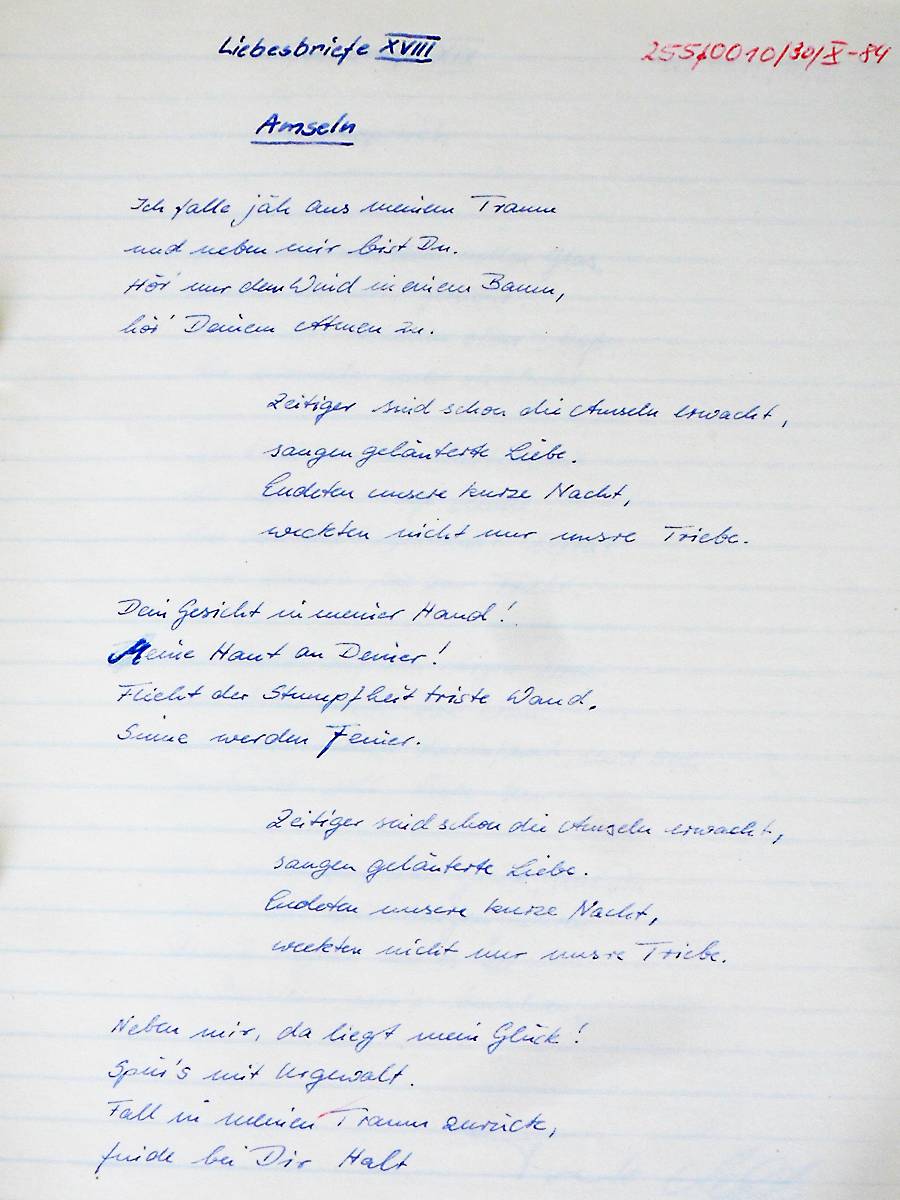 Liebesbriefe XVIII
255/0010/30/X-84
Amseln
Ich falle jäh aus meinem Traum
und neben mir bist Du.
Hör' nur den Wind in einem Baum,
hör' Deinem Atmen zu.
Zeitiger sind schon die Amseln erwacht,
sangen geläuterte Liebe.
Endeten unsere kurze Nacht,
weckten nicht nur unsre Triebe.
Dein Gesicht in meiner Hand!
Meine Haut an Deiner!
Flieht der Stumpfheit triste Wand.
Sinne werden Feuer.
Zeitiger sind schon die Amseln erwacht,
sangen geläuterte Liebe.
Endeten unsere kurze Nacht,
weckten nicht nur unsre Triebe.
Neben mir, da liegt mein Glück!
Spür's mit Urgewalt.
Fall in meinen Traum zurück,
finde bei Dir Halt